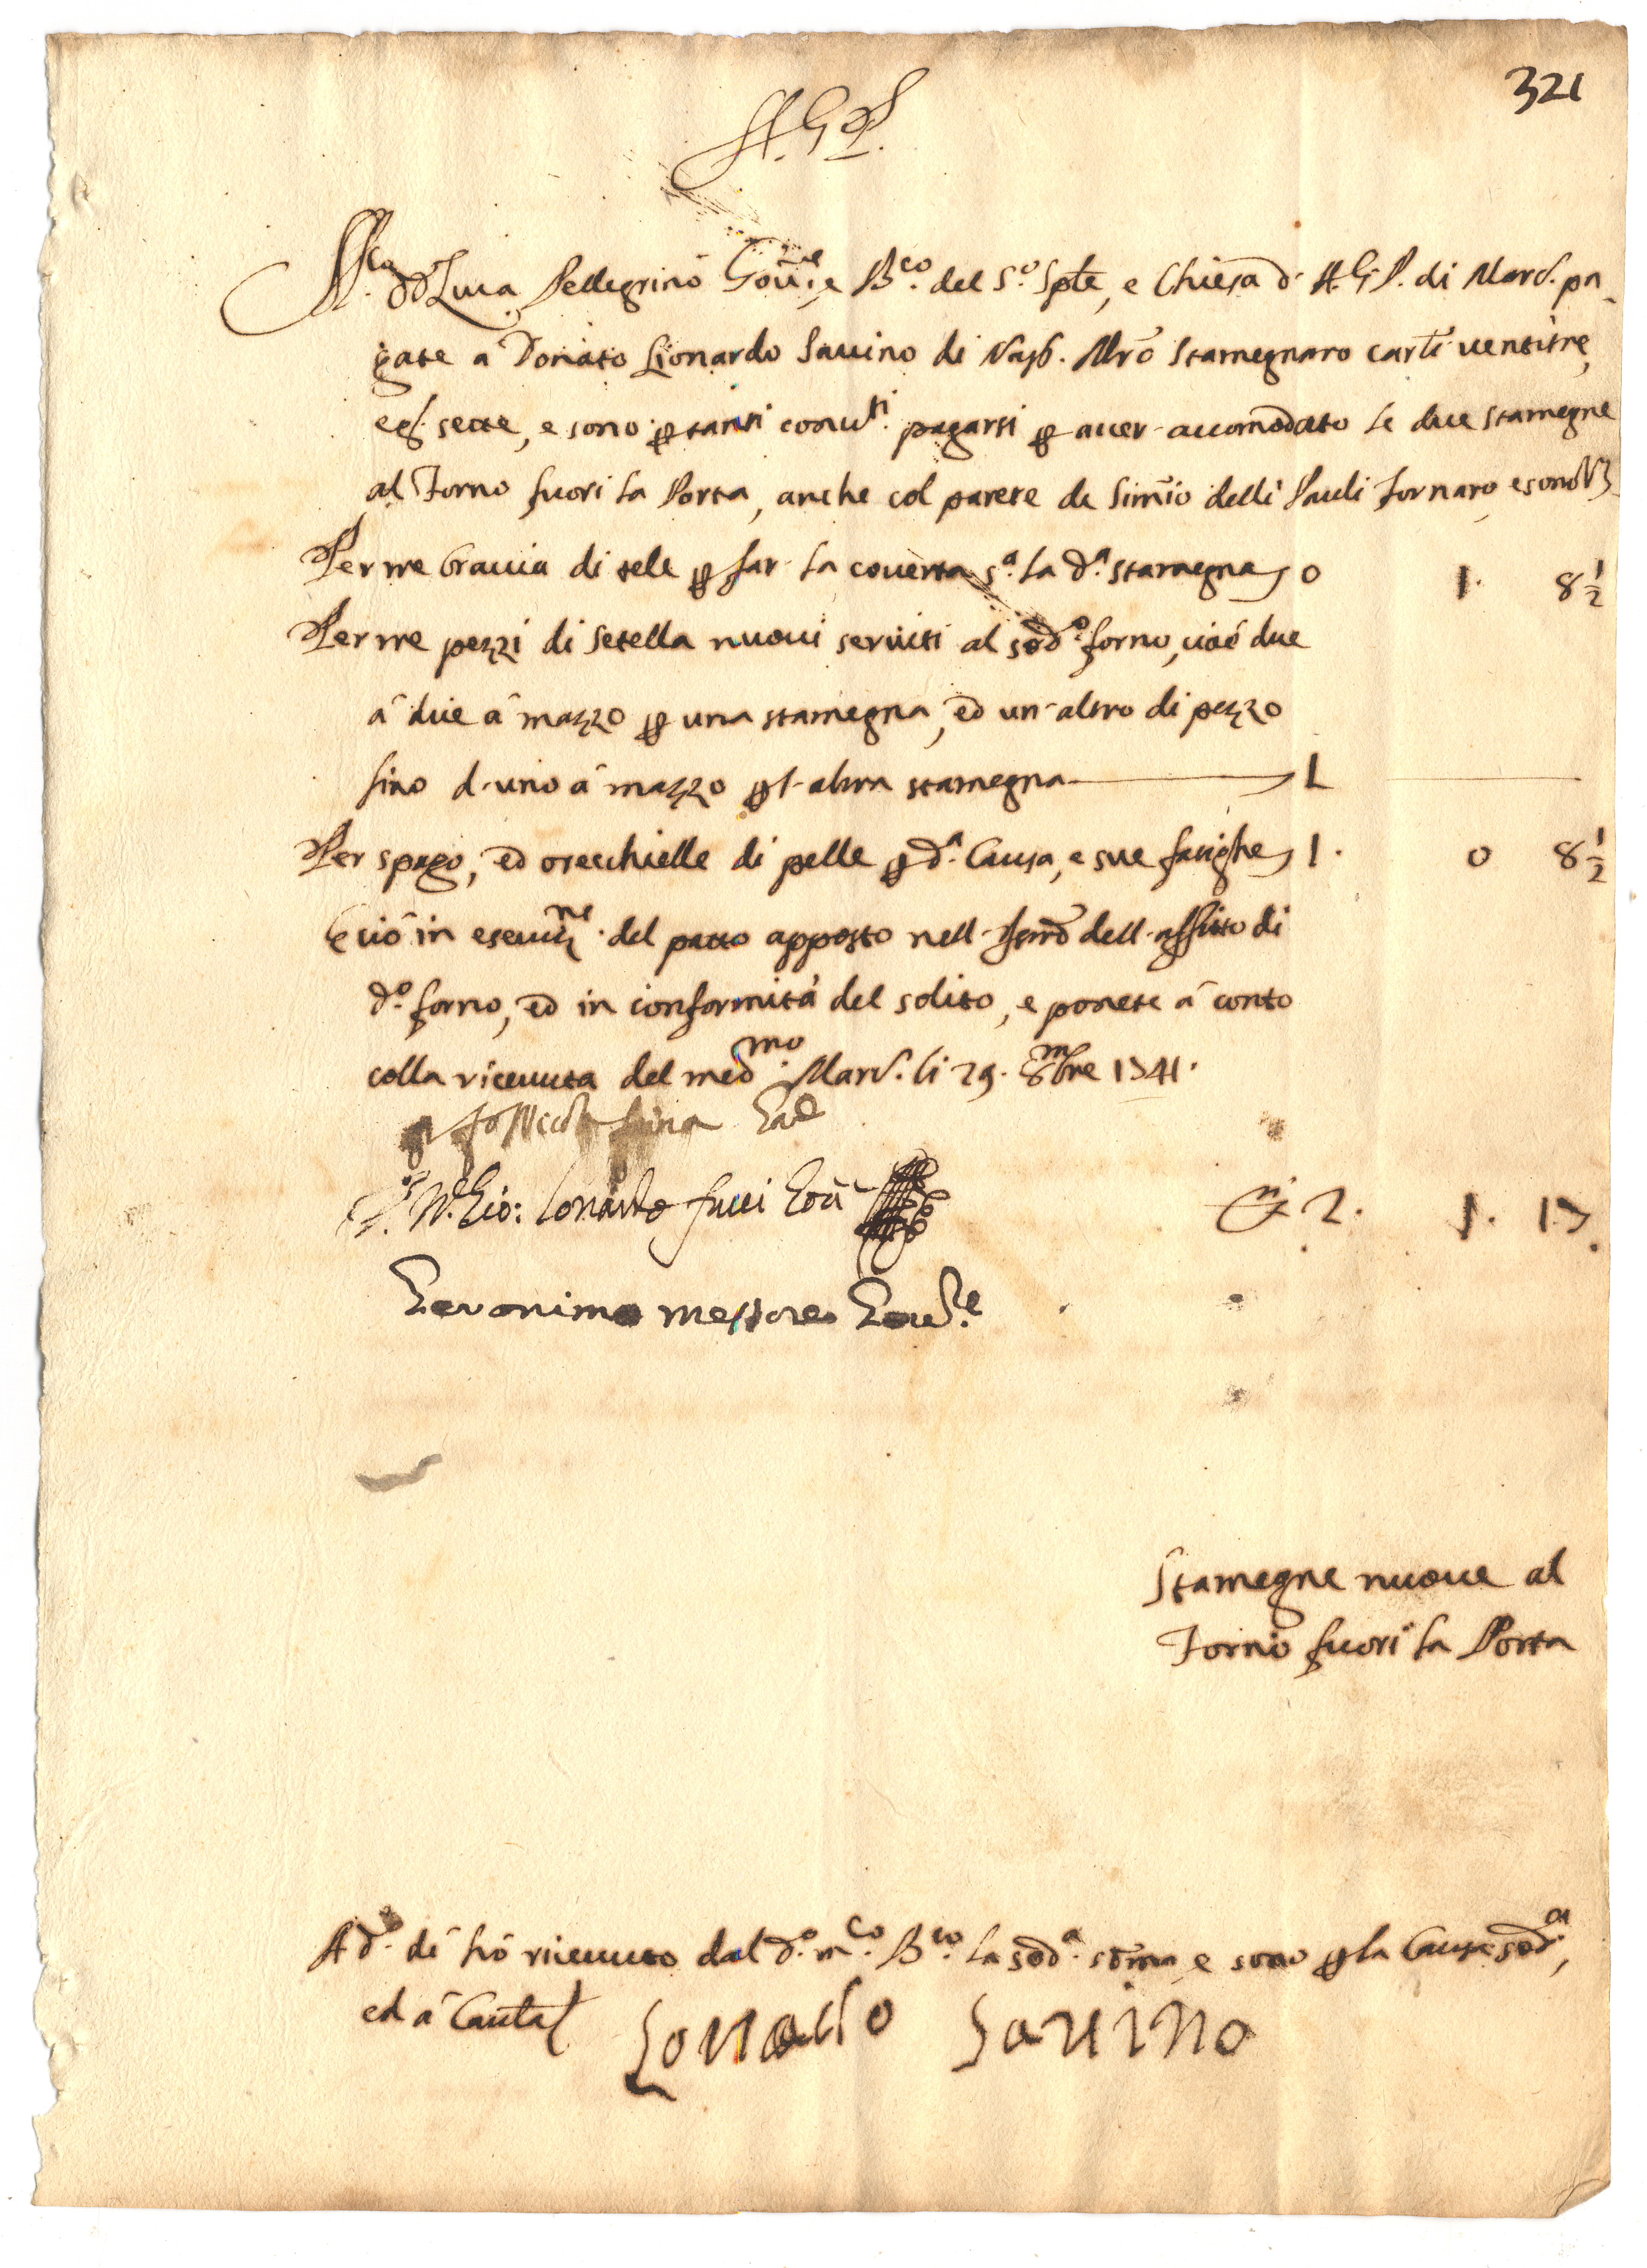 321
A.G.P.
M.co D. Luca Pellegrino Gov.re e B.co del S.o Sple, e Chiesa d' A.G.P. di Mard. pa-
gate a Donato Lionardo Savino di Nap. Mrõ Stamegnaro carl. ventitre,
e g. sette, e sono p tanti conv.ti pagarsi p aver accomodato le due stamegne
al Forno fuori la Porta, anche col parere de Simio delli Pauli Fornaro, e sono
Per tre braccia di tele p far la coverta s.a la d.a stamegna 0 1. 8 1/2
Per tre pezzi di setella nuovi serviti al sod.o forno, cioè due
à due à mazzo p una stamegna, ed un altro di pezzo
fino d'uno à mazzo p l'altra stamegna 1
Per spago, ed orecchielle di pelle p d.a Causa, e sue fatighe 1. 0 8 1/2
E ciò in esecuz.ne del patto apposto nell' dell'affitto di
d.o forno, ed in conformità del solito, e ponete à conto
colla ricevuta del med.mo Mard. li 29. 8mbre 1741.
Nicola
Gio: Lonardo Fucci Gov. D.ti 2. 1. 17
Geronimo Messore Gov.re
Stamegne nuove al
Forno fuori la Porta
A d.o dì hò ricevuto dal d.o m.co B.co la sod.a somma, e sono p la Causa sod.a,
ed à Cautal
Lonardo Savino